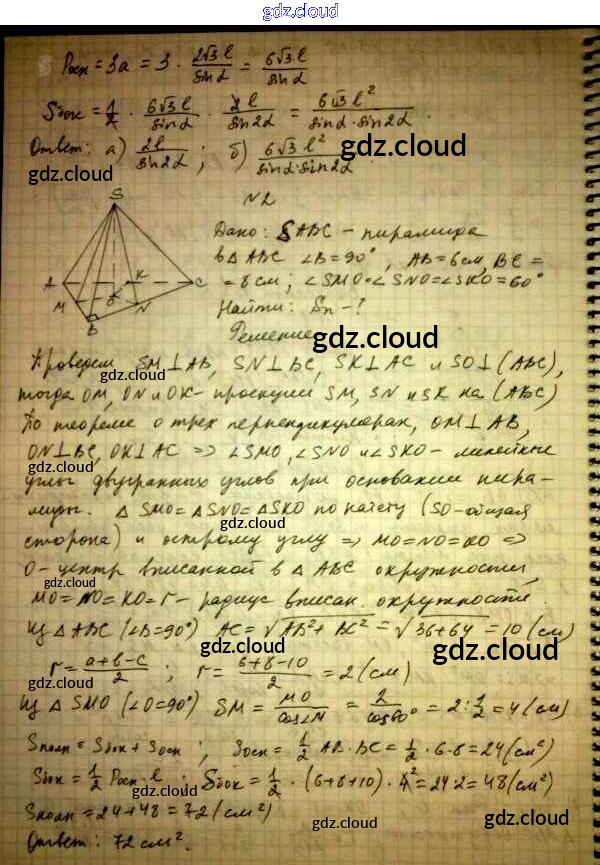 gdz.cloud
Pосн = 3a = 3 · 2√3 l / sin α = 6√3 l / sin α
Sбок = 1/2 · 6√3 l / sin α · 2l / sin 2α = 6√3 l² / sin α · sin 2α .
Ответ: а) 2l / sin 2α ; б) 6√3 l² / sin α · sin 2α .
gdz.cloud
gdz.cloud
№2
S
A
M
B
O
K
N
C
gdz.cloud
Дано: SABC – пирамида
в △ ABC ∠B = 90°, AB = 6 см, BC =
= 8 см; ∠SMO = ∠SNO = ∠SKO = 60°
gdz.cloud
Найти: Sп – ?
Решение
gdz.cloud
Проведем SM ⊥ AB, SN ⊥ BC, SK ⊥ AC и SO ⊥ (ABC),
gdz.cloud
тогда OM, ON и OK – проекции SM, SN и SK на (ABC)
По теореме о трех перпендикулярах, OM ⊥ AB,
ON ⊥ BC, OK ⊥ AC => ∠SMO, ∠SNO и ∠SKO – линейные
gdz.cloud
углы двугранных углов при основании пира-
миды. △ SMO = △ SNO = △ SKO по катету (SO – общая
gdz.cloud
сторона) и острому углу => MO = NO = KO =>
O – центр вписанной в △ ABC окружности,
gdz.cloud
gdz.cloud
MO = NO = KO = r – радиус вписан. окружности.
Из △ ABC (∠B = 90°) AC = √AB² + BC² = √36 + 64 = 10 (см)
gdz.cloud
gdz.cloud
r = a + b – c / 2 ; r = 6 + 8 – 10 / 2 = 2 (см)
gdz.cloud
gdz.cloud
Из △ SMO (∠O = 90°) SM = MO / cos∠M = 2 / cos 60° = 2 : 1/2 = 4 (см)
Sполн = Sбок + Sосн ; Sосн = 1/2 AB · BC = 1/2 · 6 · 8 = 24 (см²)
gdz.cloud
Sбок = 1/2 Pосн · l ; Sбок = 1/2 · (6 + 8 + 10) · 4 = 24 · 2 = 48 (см²)
gdz.cloud
Sполн = 24 + 48 = 72 (см²)
Ответ: 72 см².
gdz.cloud